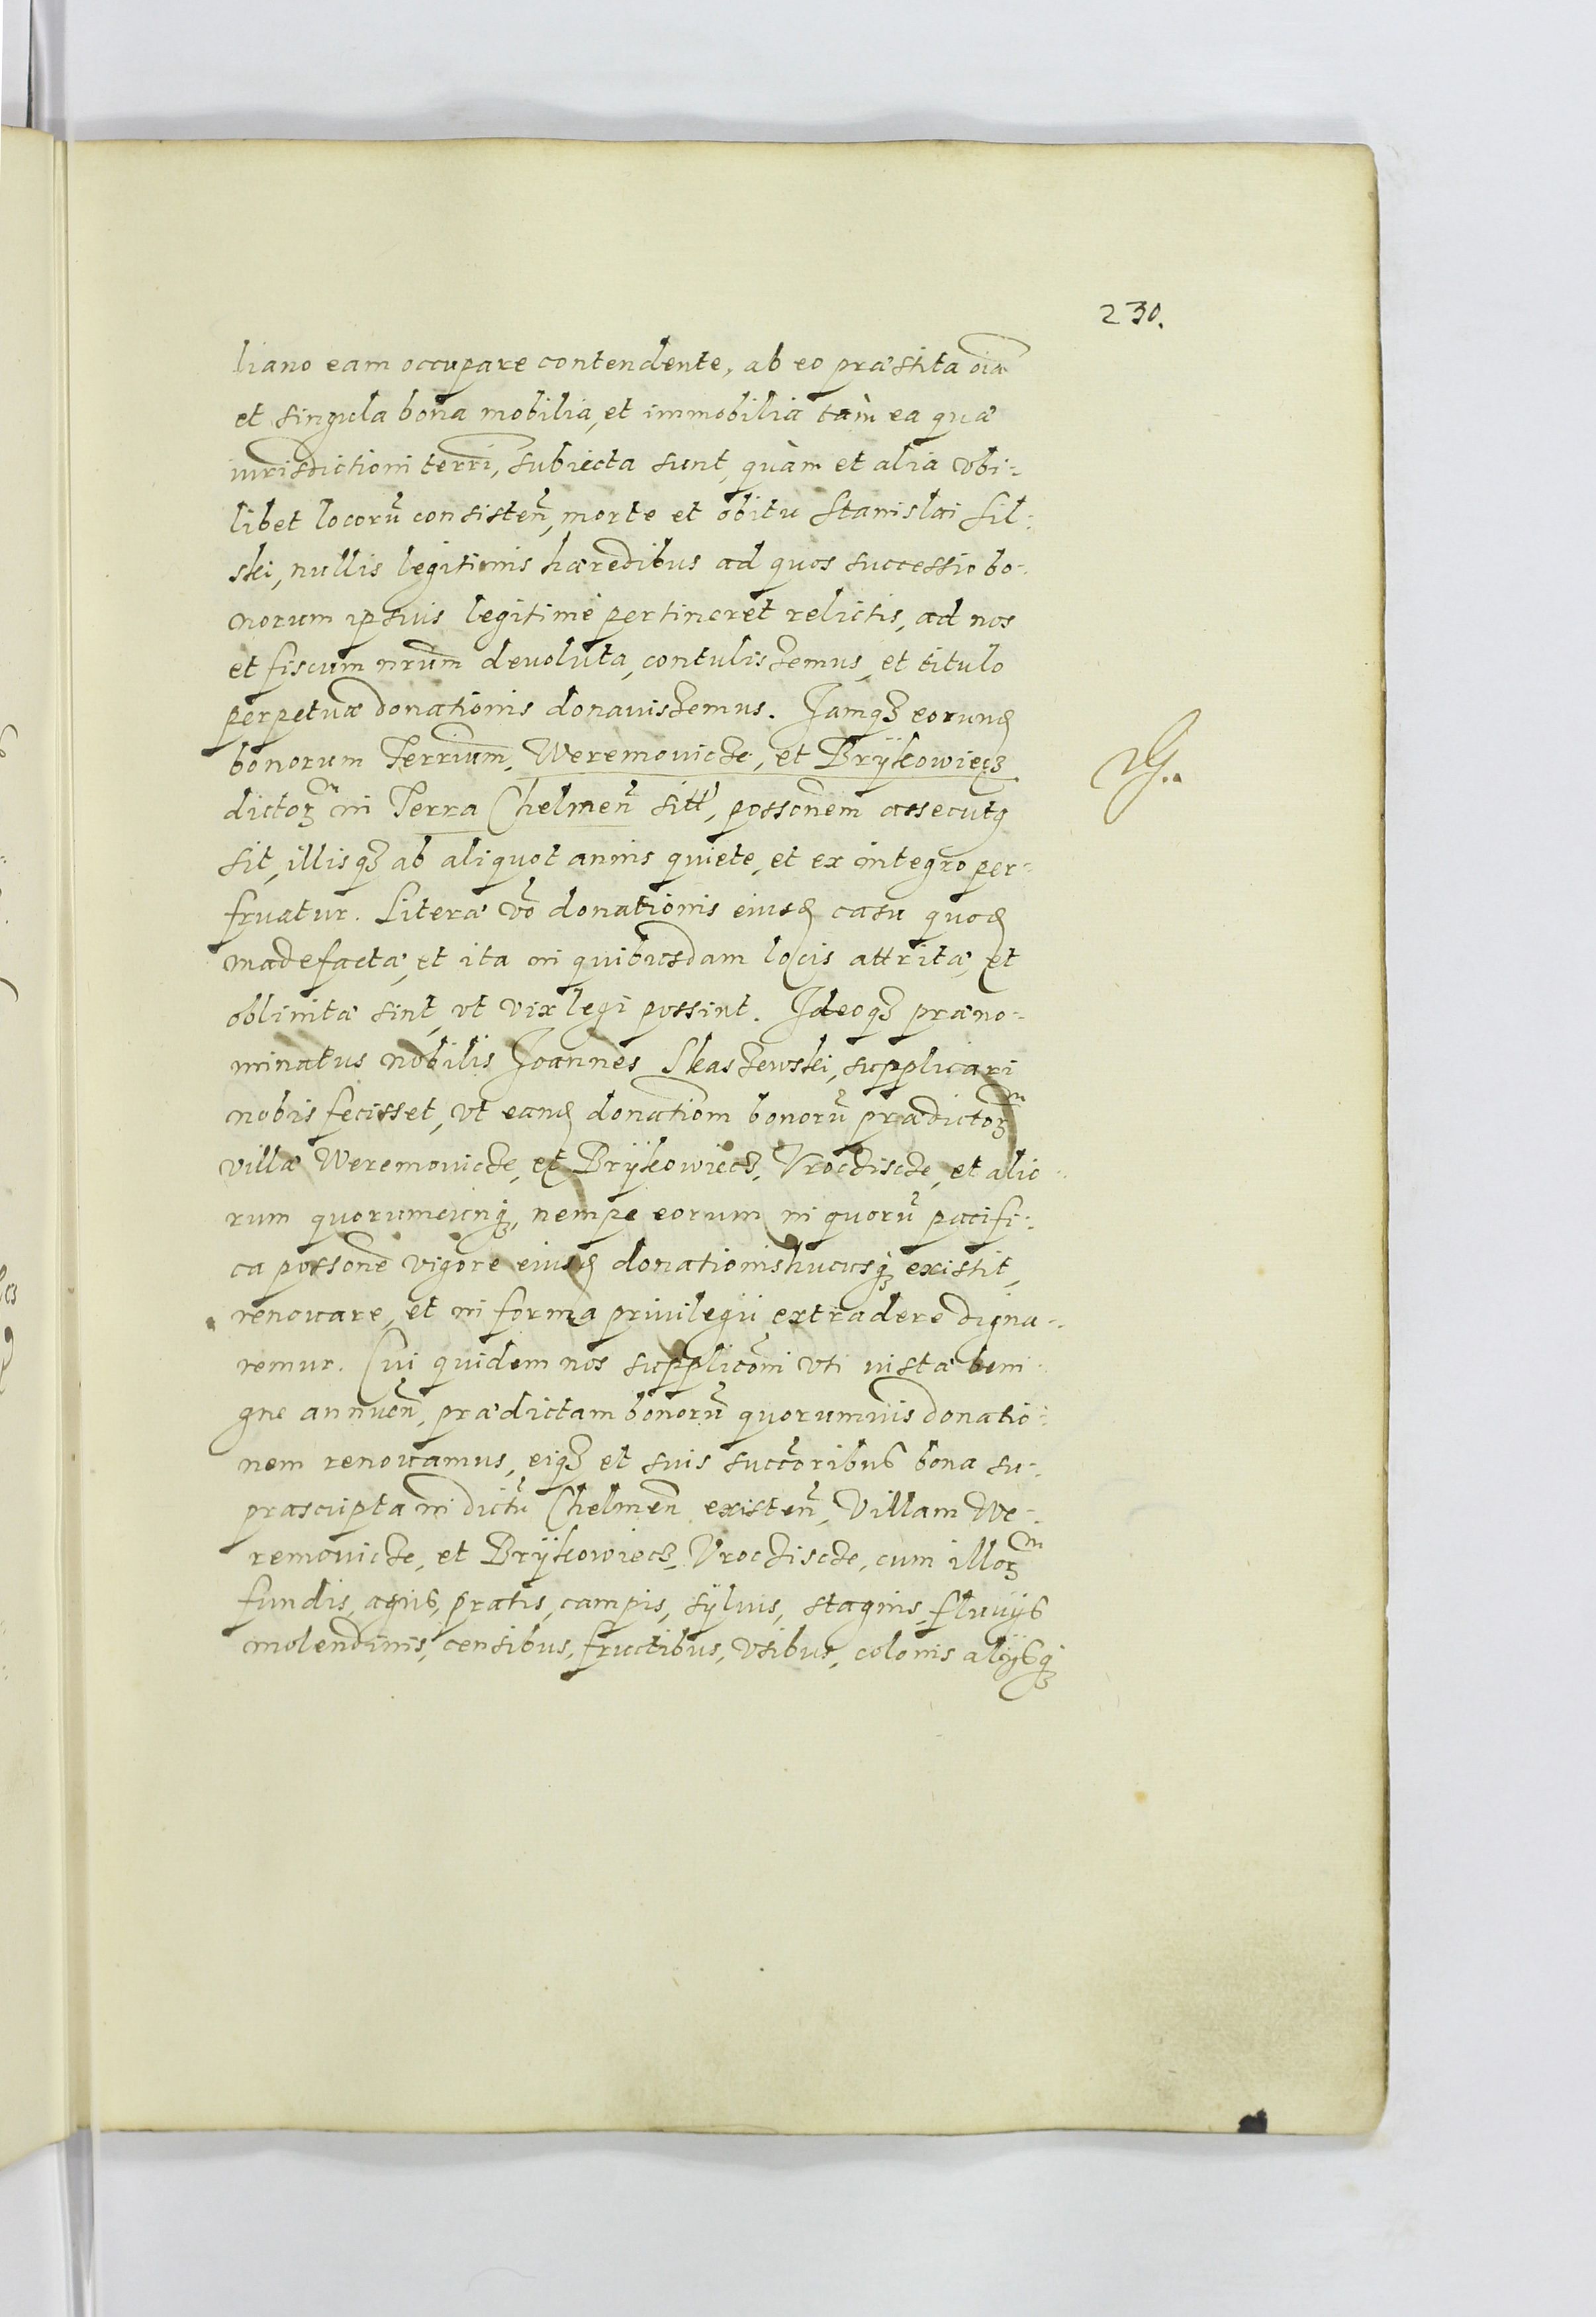 230.
liano eam occupare contendente, ab eo præstita oīa
et singula bona mobilia, et immobilia tàm ea quæ
iurisdictioni terri, subiecta sunt, quàm et alia vbi-
libet locorū consisteñ, morte et obitu Stanislai Sil-
ski, nullis legitimis hæredibus ad quos successio bo-
norum ipsius legitimè pertineret relictis, ad nos
et fiscum nrum devoluta, contulissemus, et titulo
perpetuæ donationis donavissemus. Jamqꝫ eorund
bonorum Terrium, Weremovicze, et Brÿkowiecz
dictoꝝ in Terra Chelmeñ sitt, possonem assecutꝯ
sit, illisqꝫ ab aliquot annis quiete, et ex integro per-
fruatur. Literæ vō donationis eiusd casu quod
madefactæ, et ita in quibusdam locis attritæ, et
oblinitæ sint, vt vix legi possint. Ideoqꝫ præno-
minatus nobilis Joannes Skaszewski, supplicari
nobis fecisset, vt eand donationm bonorū prædictoꝝ
villæ Weremovicze, et Brÿkowiecz, Vrocziscze, et alio-
rum quorumcunqꝫ, nempe eorum in quorū pacifi-
ca possone vigore eiusd donationis hucusqꝫ existit,
renovare, et in forma privilegii extradere digna-
remur. Cui quidem nos supplicōni vti iustæ beni-
gne annueñ, prædictam bonorū quorumvis donatio-
nem renovamus, eiqꝫ et suis succoribus bona su-
prascripta in dictū Chelmeñ existeñ, Villam We-
removicze, et Brÿkowiecz, Vrocziscze, cum illoꝝ
fundis, agris, pratis, campis, sÿlvis, stagnis, fluvÿs
molendinis, censibus, fructibus, vsibus, colonis alÿsqꝫ